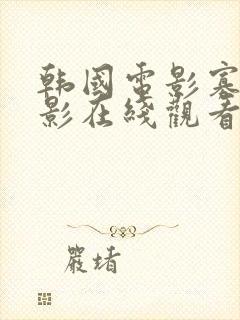 韩國電影
影在綫觀看
嚴堵